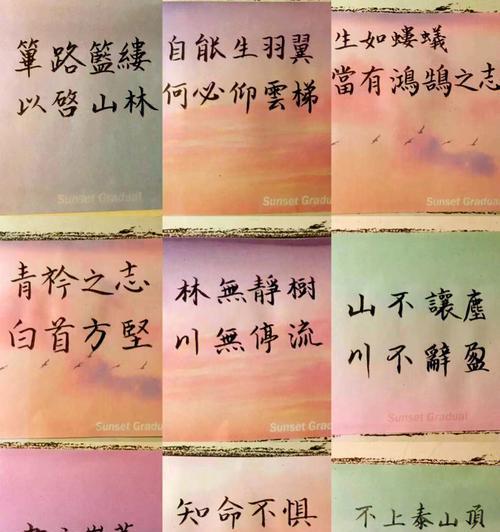 篳路籃縷
以啓山林
Sunset Gradual
自能生羽翼
何必仰雲梯
Sunset Gradu
生如螻蟻
當有鴻鵠之志
Sunset Gradual
青衿之志
白首方堅
Sunset Gradu
林無靜樹
川無停流
Sunset Gradu
山不讓塵
川不辭盈
Sunset Gradual
知命不惧
不上泰山頂